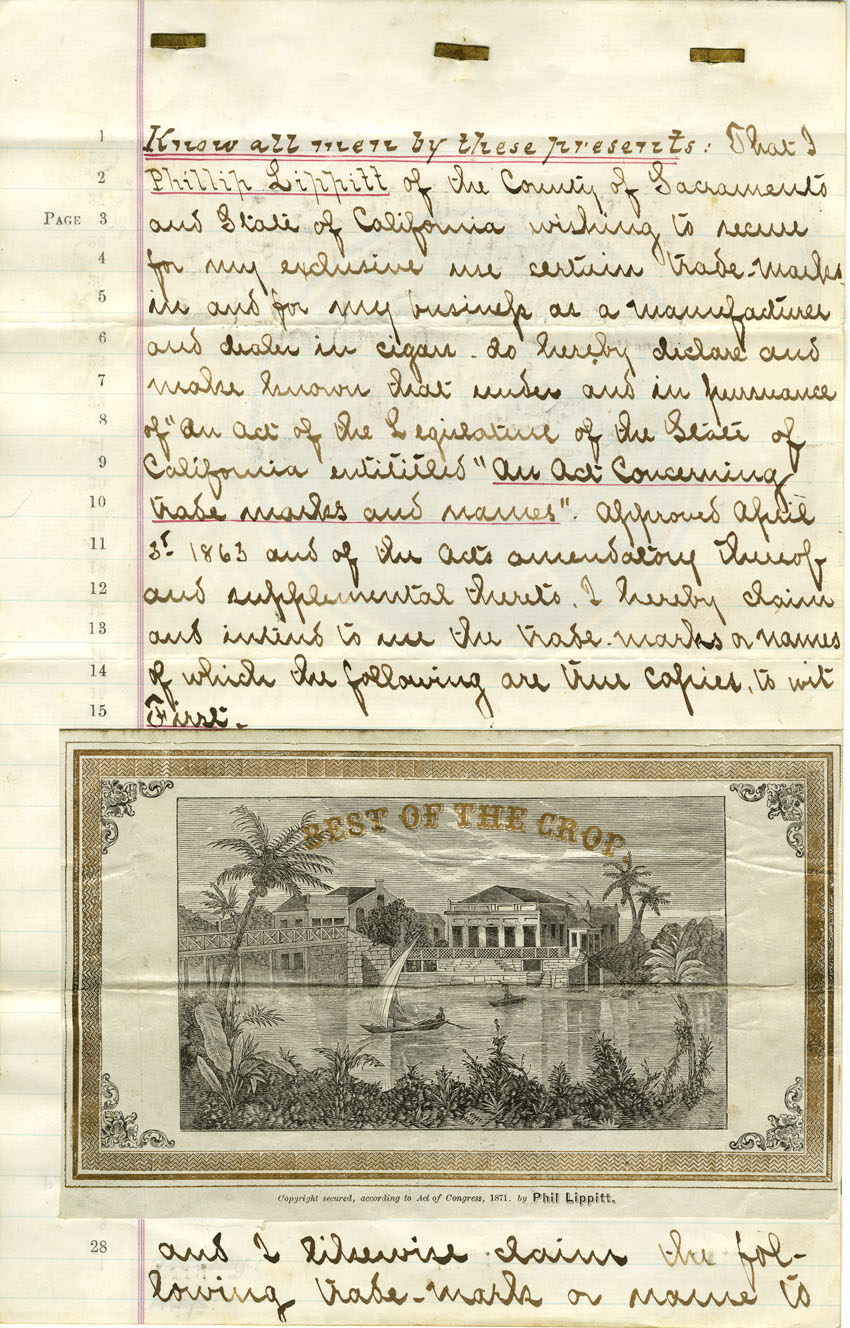 1 Know all men by these presents: That I
2 Phillip Lippitt of the County of Sacramento
PAGE 3 and State of California wishing to secure
4 for my exclusive use certain trade-marks
5 in and for my business as a manufacturer
6 and dealer in cigars. do hereby declare and
7 make known that under and in pursuance
8 of "An Act of the Legislature of the State of
9 California entitled "An Act Concerning
10 trade marks and names". Approved April
11 3d 1863 and of the Acts amendatory thereof
12 and supplemental thereto. I hereby claim
13 and intend to use the trade-marks or names
14 of which the following are true copies, to wit
15 First.
BEST OF THE CROP.
Copyright secured, according to Act of Congress, 1871. by Phil Lippitt.
28 and I likewise claim the fol-
lowing trade-mark or name to